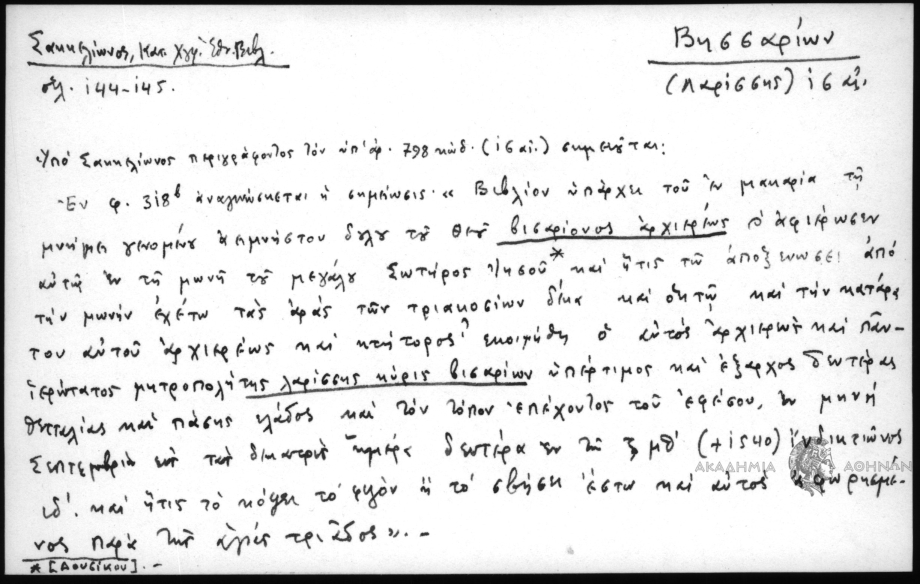 Σακκελίωνος, Κατ. Χγρ. Ἐθν. Βιβλ.
σελ. 144-145.
Βησσαρίων
(Λαρίσσης) ις αἰ.
Ὑπό Σακκελίωνος περιγράφοντος τόν ὑπ' ἀρ. 798 κώδ. (ις αἰ.) σημειοῦται:
Ἐν φ. 318β ἀναγινώσκεται ἡ σημείωσις· « Βιβλίον ὑπάρχει τοῦ ἐν μακαρία τῇ
μνήμει γενομένου ἀειμνήστου δούλου τοῦ θεοῦ βισαρίονος ἀρχιερέως ὁ ἀφιέρωσεν
αὐτῷ ἐν τῇ μωνῇ τοῦ μεγάλου Σωτήρος Ἰησοῦ* καὶ ἥτις τῶ ἀποξενωσει ἀπό
τήν μωνήν ἐχέτω τὰς ἀράς τῶν τριακοσίων δέκα καὶ ὀκτῶ καὶ τήν κατάρα
του αὐτοῦ ἀρχιερέως καὶ κτήτορος ἐκοιμήθη ὁ αὐτός ἀρχιερωὺς καὶ πᾶν-
ἱερώτατος μητροπολήτης λαρίσσης κύρις βισαρίων ὑπέρτιμος καὶ ἐξαρχος δευτέρας
θετταλίας καὶ πάσης ἐλάδος καὶ τόν τόπον ἐπέχοντος τοῦ ἐφέσου, ἐν μηνή
Σεπτεμβρίω εἰς τας δεκατρεῖς ἡμέρα δευτέρα ἐν ἔτη ζμθ' (+1540) ἰνδικτιῶνος
ιδ'. καὶ ἥτις τὸ κόψει τὸ φύλον ἢ τό σβήση ἔστω καὶ αὐτος ἀφωρησμέ-
νος παρὰ τῆς ἁγίας τριάδος ». -
* [Δουσίκου]. -
ΑΚΑΔΗΜΙΑ ΑΘΗΝΩΝ